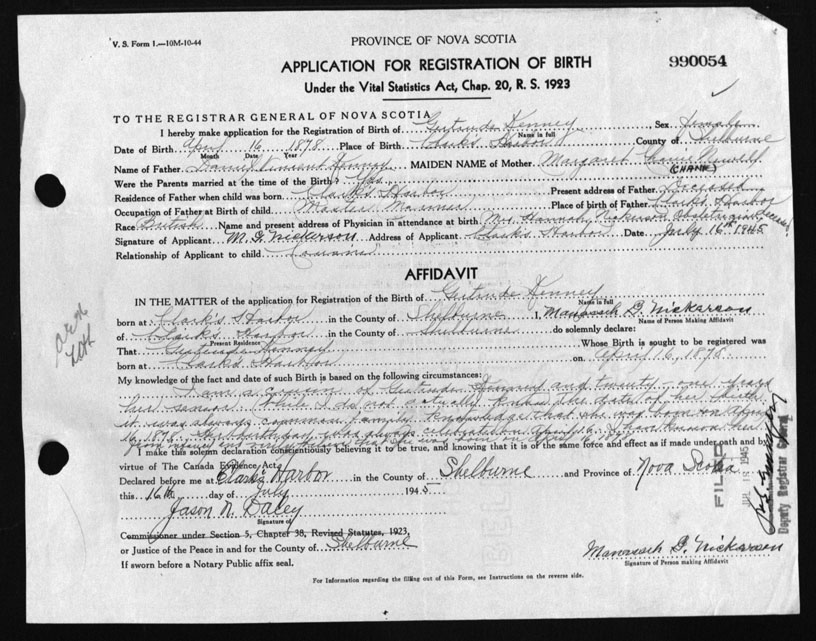 V. S. Form 1.—10M-10-44
PROVINCE OF NOVA SCOTIA
APPLICATION FOR REGISTRATION OF BIRTH
990054
Under the Vital Statistics Act, Chap. 20, R. S. 1923
TO THE REGISTRAR GENERAL OF NOVA SCOTIA
I hereby make application for the Registration of Birth of Gertrude Kenney, Sex Female
Name in full
Date of Birth April 16 1878 Place of Birth Clark's Harbor County of Shelburne
Month Date Year
Name of Father Vincent Kenney MAIDEN NAME of Mother Margaret Newell
(CHANE)
Were the Parents married at the time of the Birth? Yes
Residence of Father when child was born Clark's Harbor Present address of Father Deceased
Occupation of Father at Birth of child Master Mariner Place of birth of Father Clark's Harbor
Race British Name and present address of Physician in attendance at birth Mrs. Hannah Nickerson Deceased
Signature of Applicant M. G. Nickerson Address of Applicant Clark's Harbor Date July 16th 1945
Relationship of Applicant to child Cousin
AFFIDAVIT
IN THE MATTER of the application for Registration of the Birth of Gertrude Kenney
Name in full
born at Clark's Harbor in the County of Shelburne I, Manasseh G. Nickerson
Name of Person Making Affidavit
of Clark's Harbor in the County of Shelburne do solemnly declare:
Present Residence
That Gertrude Kenney Whose Birth is sought to be registered was
born at Clark's Harbor on April 16, 1878
My knowledge of the fact and date of such Birth is based on the following circumstances:
I am a cousin of Gertrude Kenney and twenty one years
her senior. While I do not actually know the date of her birth
it was always common family knowledge that she was born on April
16, 1878. Her birthday was always celebrated on April 16. I have known her
from infancy and she was born on April 16, 1878.
I make this solemn declaration conscientiously believing it to be true, and knowing that it is of the same force and effect as if made under oath and by
virtue of The Canada Evidence Act.
Declared before me at Clark's Harbor in the County of Shelburne and Province of Nova Scotia
this 16th day of July 1945
Jason N. Daley
Signature of
Commissioner under Section 5, Chapter 38, Revised Statutes, 1923,
or Justice of the Peace in and for the County of Shelburne
If sworn before a Notary Public affix seal.
Manasseh G. Nickerson
Signature of Person making Affidavit
For Information regarding the filling out of this Form, see Instructions on the reverse side.
FILED
JUL 18 1945
Deputy Registrar General